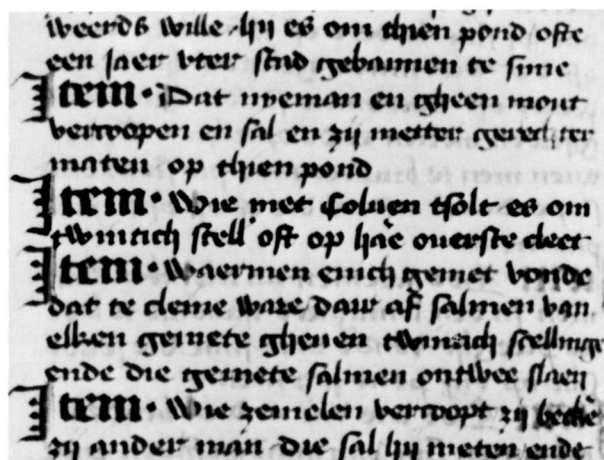 weerds wille hij es om thien pond ofte
een jaer vter stad gebannen te sine
Item · Dat nyeman en gheen mout
vercoopen en sal en zij metter gerechter
maten op thien pond
Item · Wie met Coluen tsolt es om
twintich stell' oft op hae ouerste cleet
Item · Waermen enich gemet vonde
dat te cleine ware daer af salmen van
elken gemete gheuen twintich stellinge
ende die gemete salmen ontwee slaen
Item · Wie zemelen vercoopt zij becke
zij ander man die sal hij meten ende